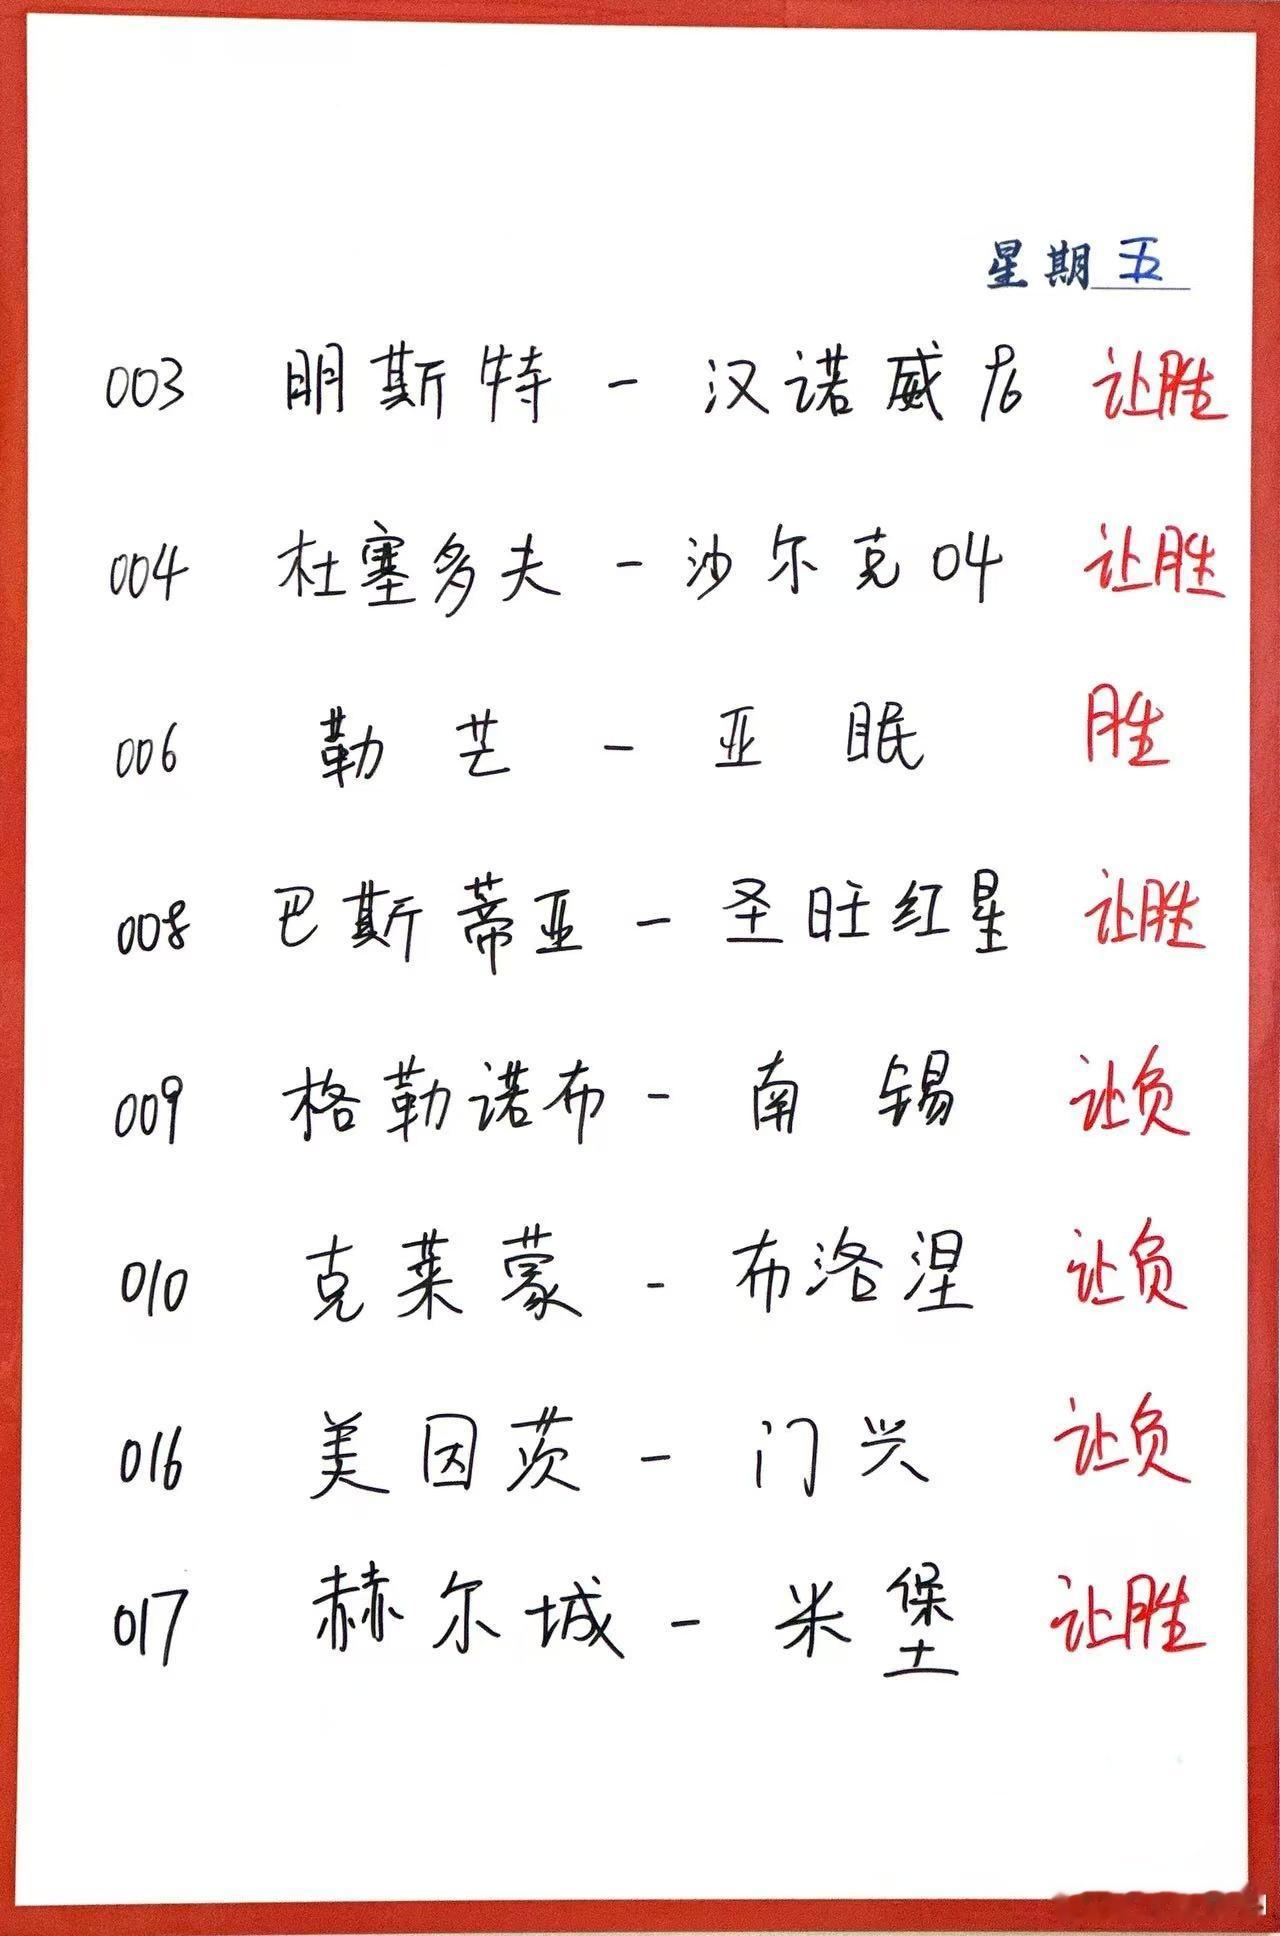 星期五
003 明斯特 - 汉诺威 让胜
004 杜塞多夫 - 沙尔克04 让胜
006 勒芒 - 亚眠 胜
008 巴斯蒂亚 - 圣旺红星 让胜
009 格勒诺布 - 南锡 让负
010 克莱蒙 - 布洛涅 让负
016 美因茨 - 门兴 让负
017 赫尔城 - 米堡 让胜